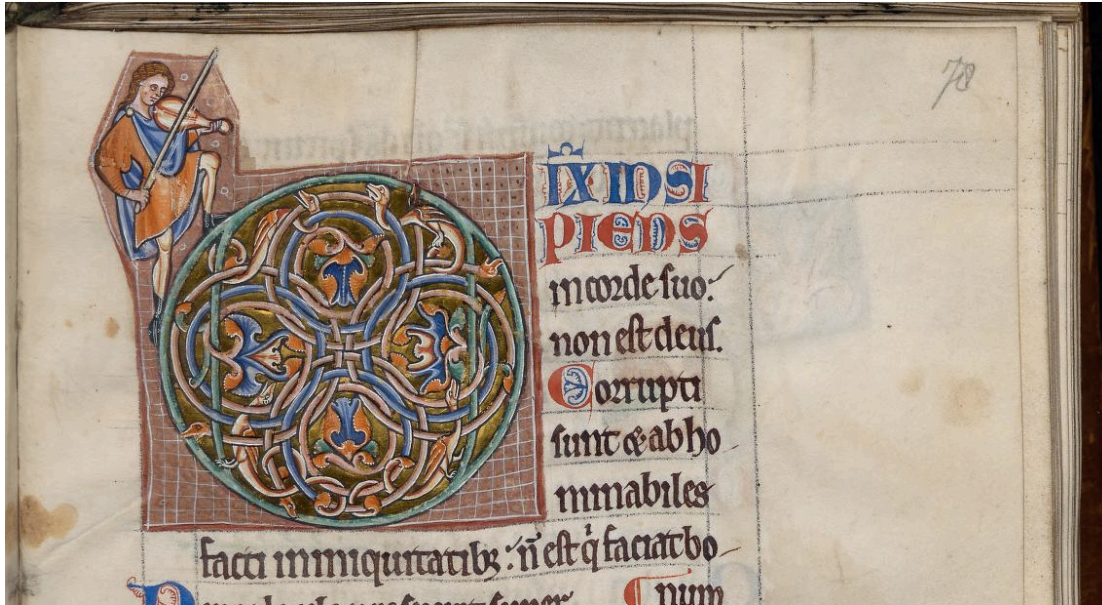 78
DIX̄ INSI
PIENS
in corde suo:
non est deus.
Corrupti
sunt & abho
minabiles
facti in iniquitatibꝫ: n̄ est q̇ faciat bo
num